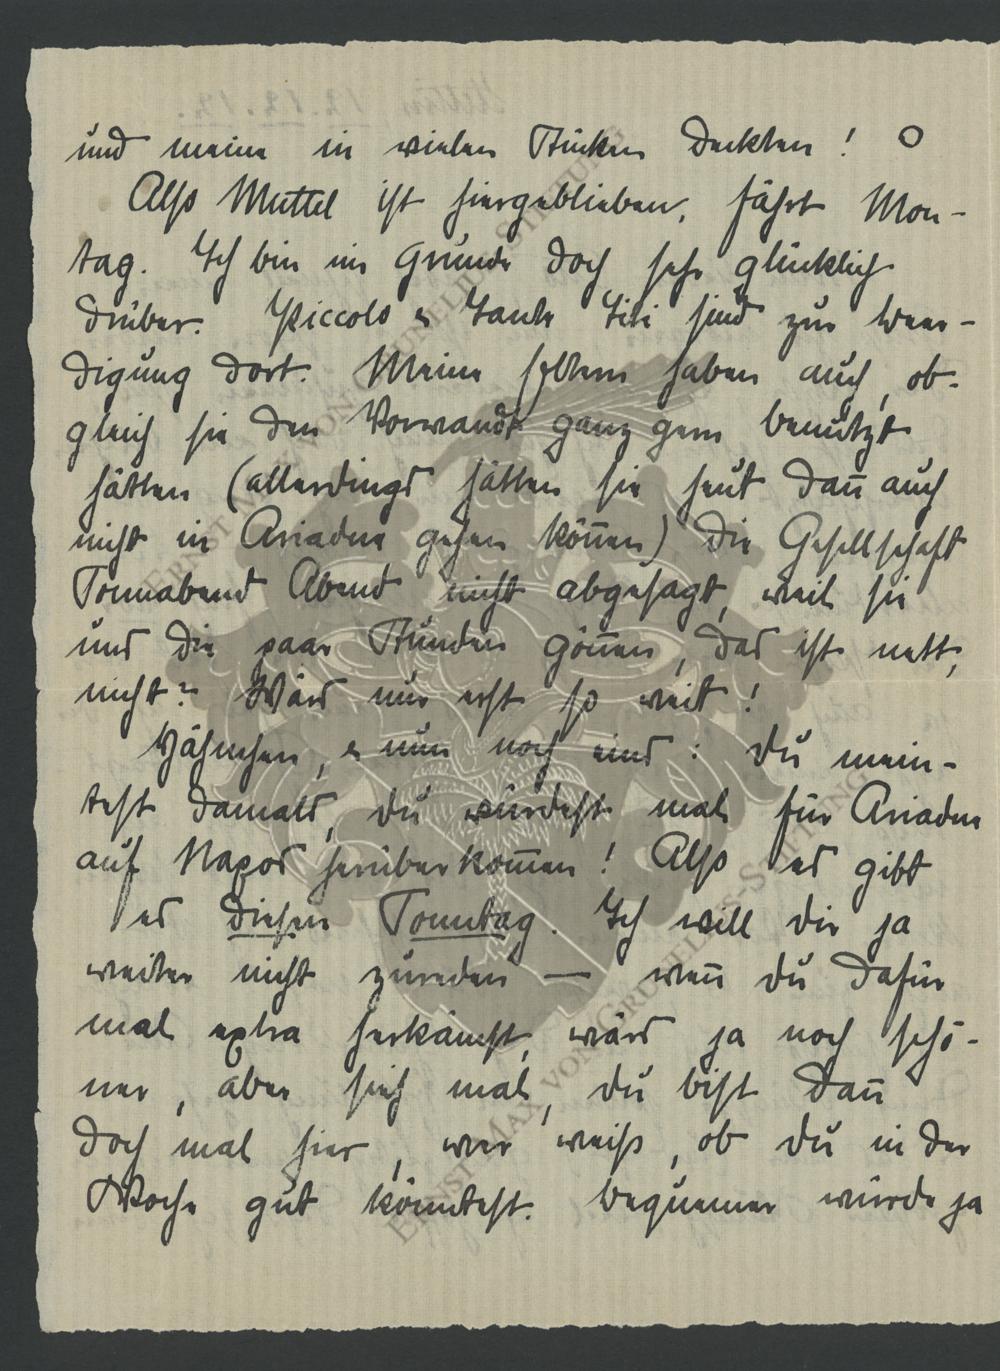 und meine in vielen Stücken deckten! O
Also Muttel ist hiergeblieben, fährt Mon-
tag. Ich bin im Grunde doch sehr glücklich
drüber. Piccolo & Tante Titi sind zur Beer-
digung dort. Meine Eltern haben auch, ob-
gleich sie den Vorwand ganz gern benutzt
hätten (allerdings hätten sie heut dañ auch
nicht in Ariadne gehen köñen) die Gesellschaft
Sonnabend Abend nicht abgesagt, weil sie
uns die paar Stunden göñen, das ist nett,
nicht? Wärs nur erst so weit!
Hähnchen, & nun noch eins: Du mein-
test damals, Du würdest mal für Ariadne
auf Naxos herüberkom̄en! Also es gibt
es diesen Sonntag. Ich will Dir ja
weiter nicht zureden — weñ Du dafür
mal extra herkämst, wärs ja noch schö-
ner, aber sieh mal, Du bist dañ
doch mal hier, wer weiß, ob Du in der
Woche gut könntest. Bequemer würde ja
ERNST MAX VON GRUNELIUS-STIFTUNG
ERNST MAX VON GRUNELIUS-STIFTUNG